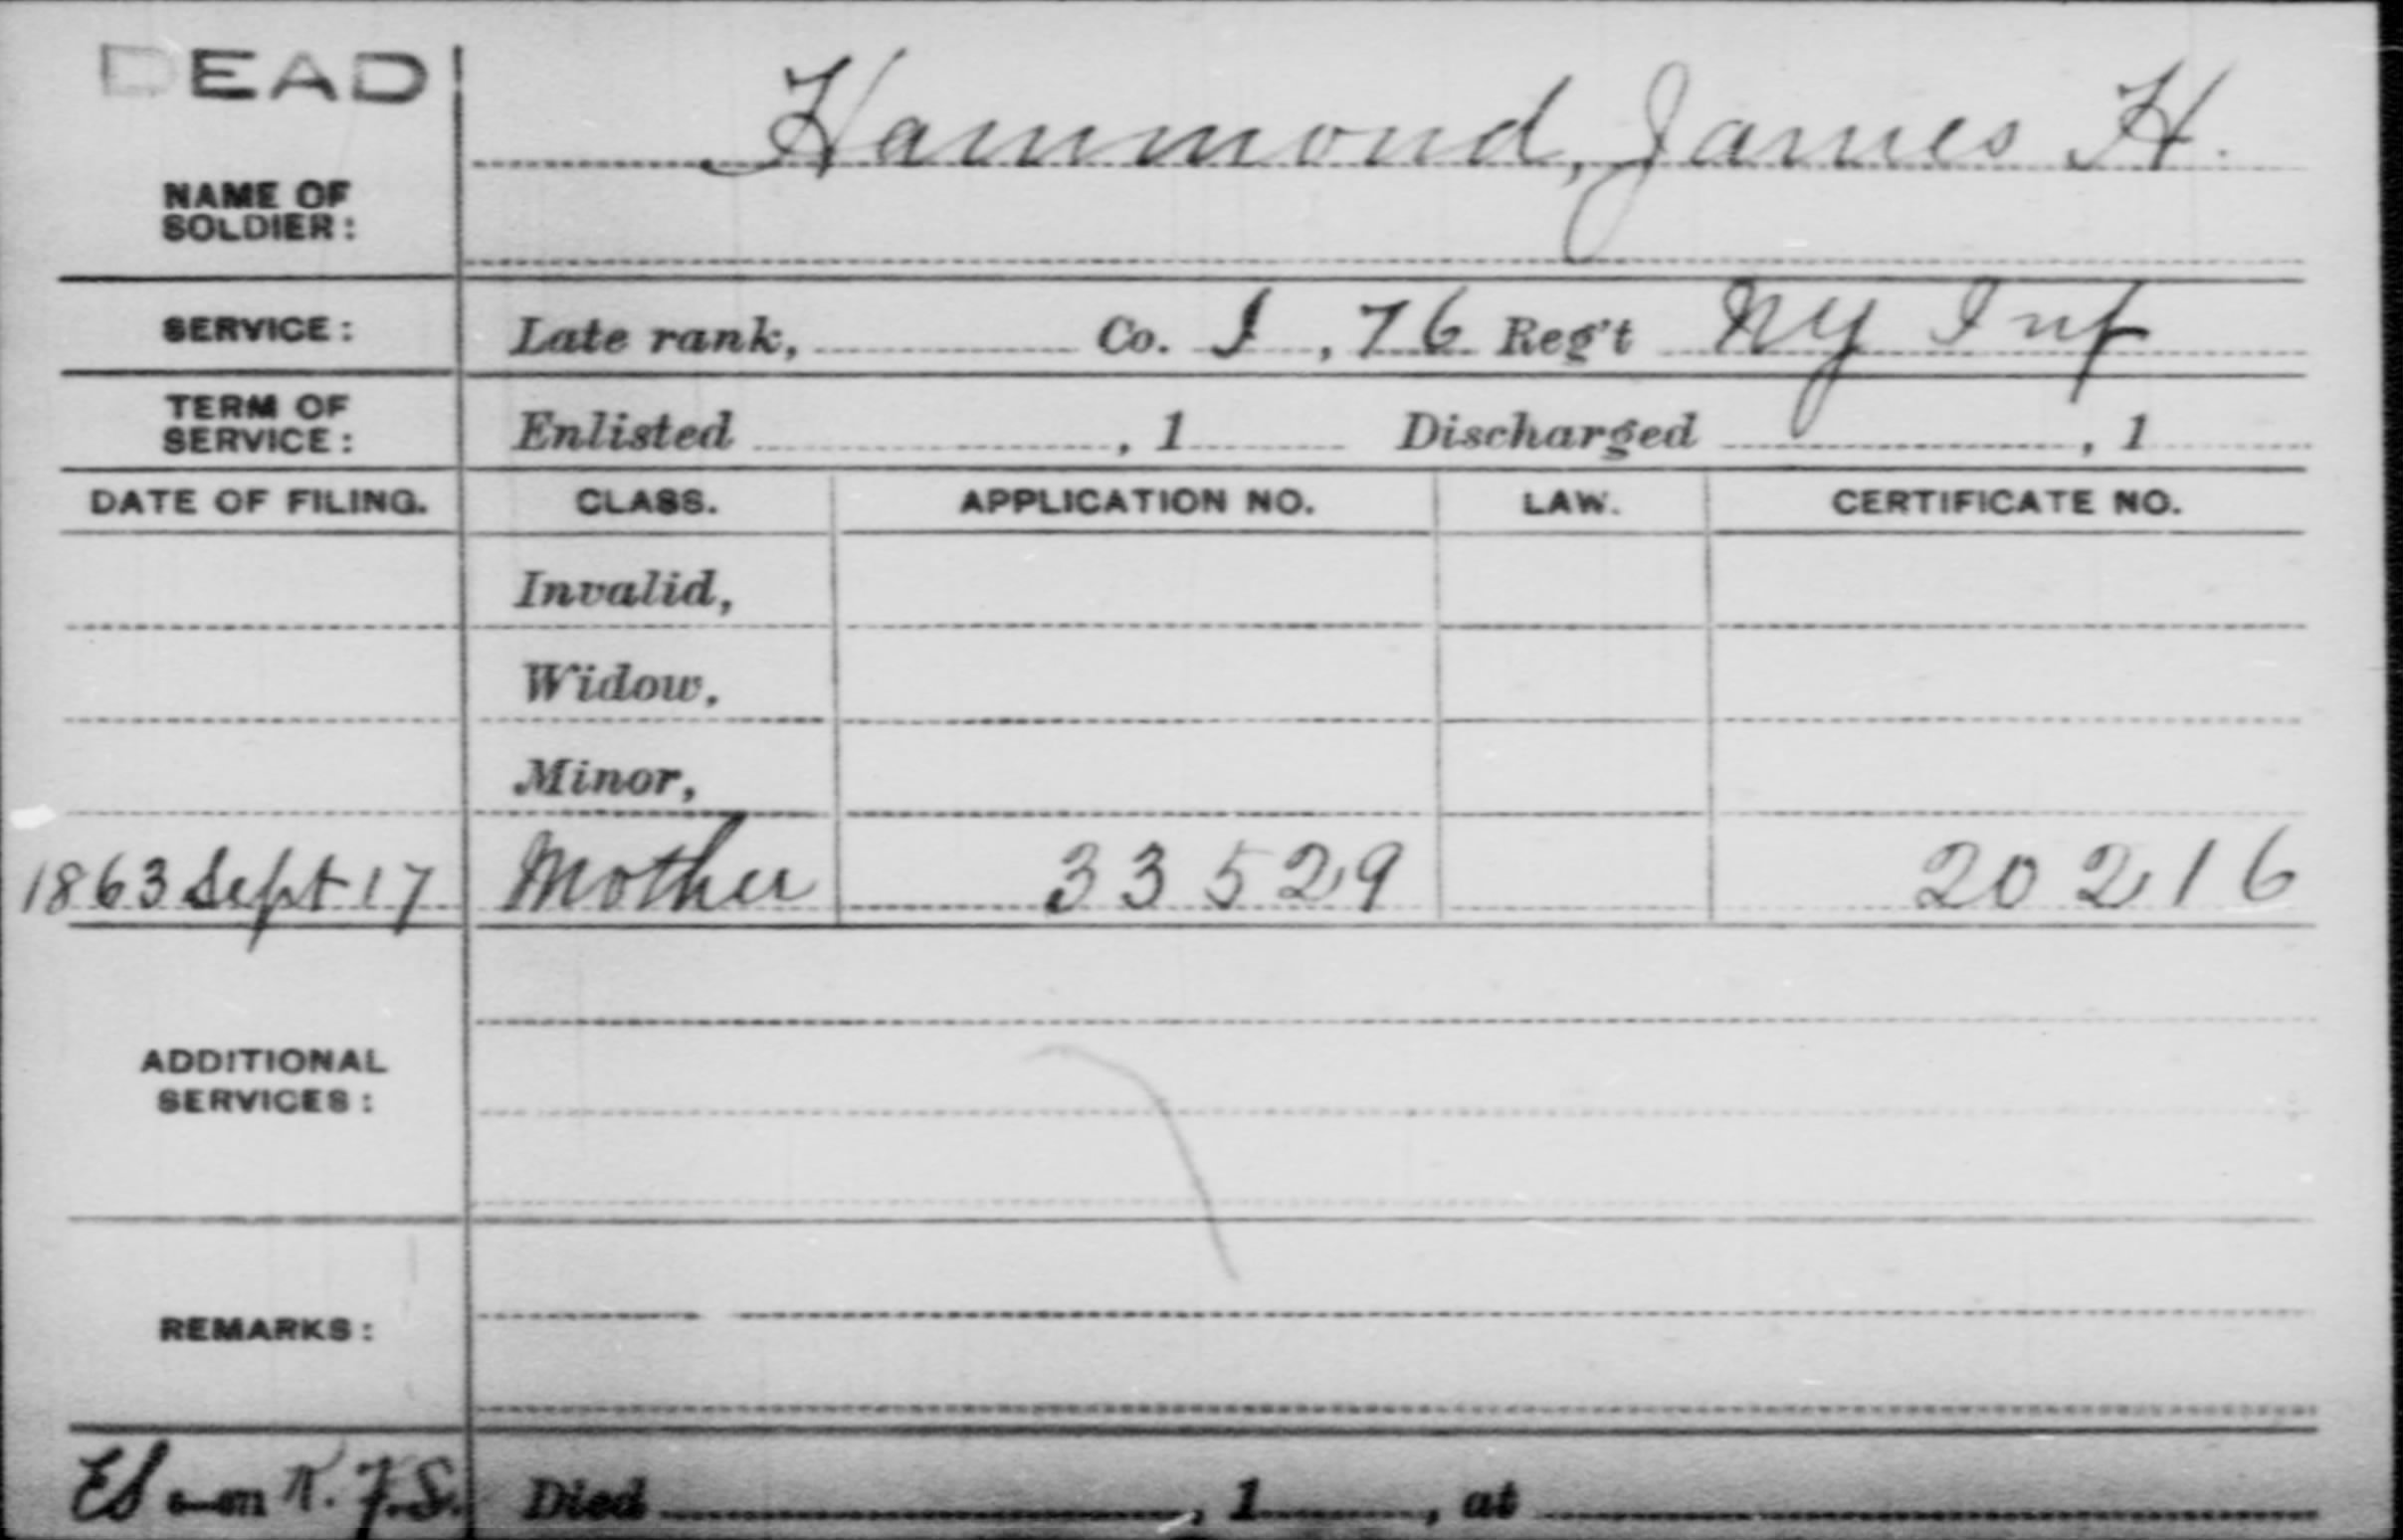 DEAD
Hammond, James H.
NAME OF
SOLDIER:
SERVICE: Late rank, Co. I, 76 Reg't NY Inf
TERM OF
SERVICE: Enlisted , 1 Discharged , 1
DATE OF FILING. CLASS. APPLICATION NO. LAW. CERTIFICATE NO.
Invalid,
Widow,
Minor,
1863 Sept 17 Mother 33529 20216
ADDITIONAL
SERVICES:
REMARKS:
Died , 1 , at